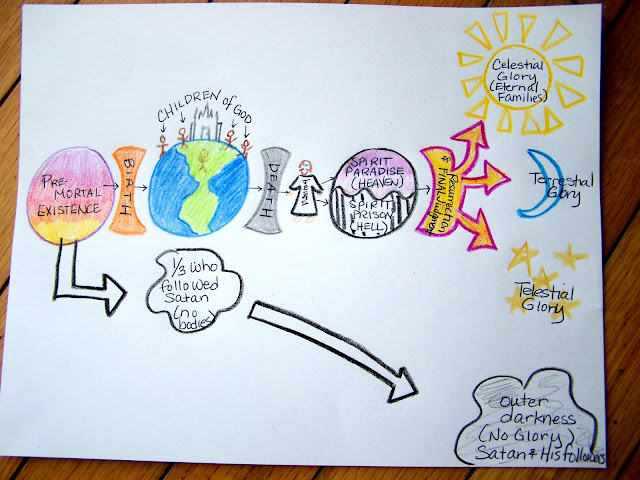 CHILDREN of GOD
PRE-
MORTAL
EXISTENCE
BIRTH
DEATH
SPIRIT
PARADISE
(HEAVEN)
SPIRIT
PRISON
(HELL)
Resurrection
& Final Judgment
Celestial
Glory
(Eternal
Families)
Terrestrial
Glory
Telestial
Glory
1/3 who
followed
Satan
(no
bodies)
outer
darkness
(No Glory)
Satan & His followers